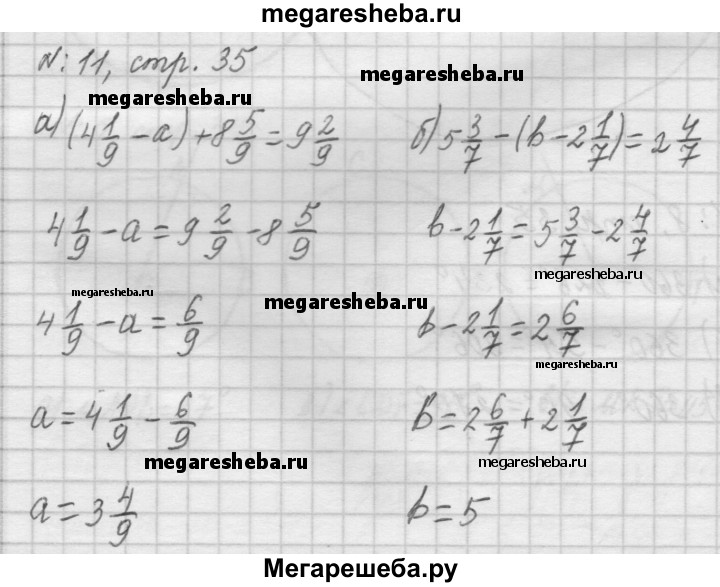 megaresheba.ru
N: 11, стр. 35
megaresheba.ru
megaresheba.ru
а) (4 1/9 - a) + 8 5/9 = 9 2/9
б) 5 3/7 - (b - 2 1/7) = 2 4/7
4 1/9 - a = 9 2/9 - 8 5/9
b - 2 1/7 = 5 3/7 - 2 4/7
megaresheba.ru
megaresheba.ru
megaresheba.ru
4 1/9 - a = 6/9
b - 2 1/7 = 2 6/7
megaresheba.ru
a = 4 1/9 - 6/9
b = 2 6/7 + 2 1/7
megaresheba.ru
megaresheba.ru
a = 3 4/9
b = 5
Мегарешеба.ру